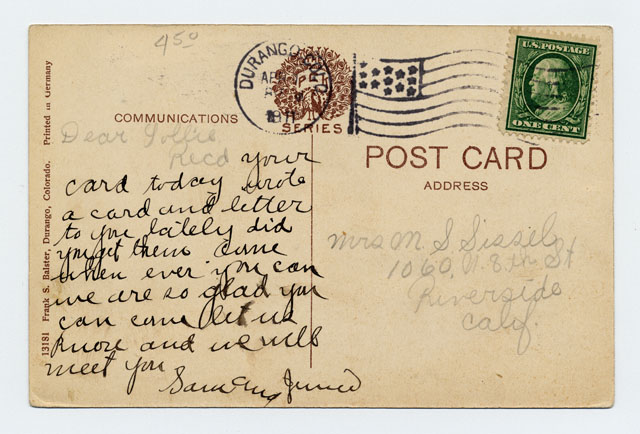 450
DURANGO, COLO.
1911
SERIES
U.S. POSTAGE
ONE CENT
COMMUNICATIONS
POST CARD
ADDRESS
Printed in Germany
13181 Frank S. Balster, Durango, Colorado.
Dear
Recd your
card today wrote
a card and letter
to you lately did
you get them come
when ever you can
we are so glad you
can come let us
know and we will
meet you
Mrs M. S.
1060. N. 8th St
Riverside
Calif.